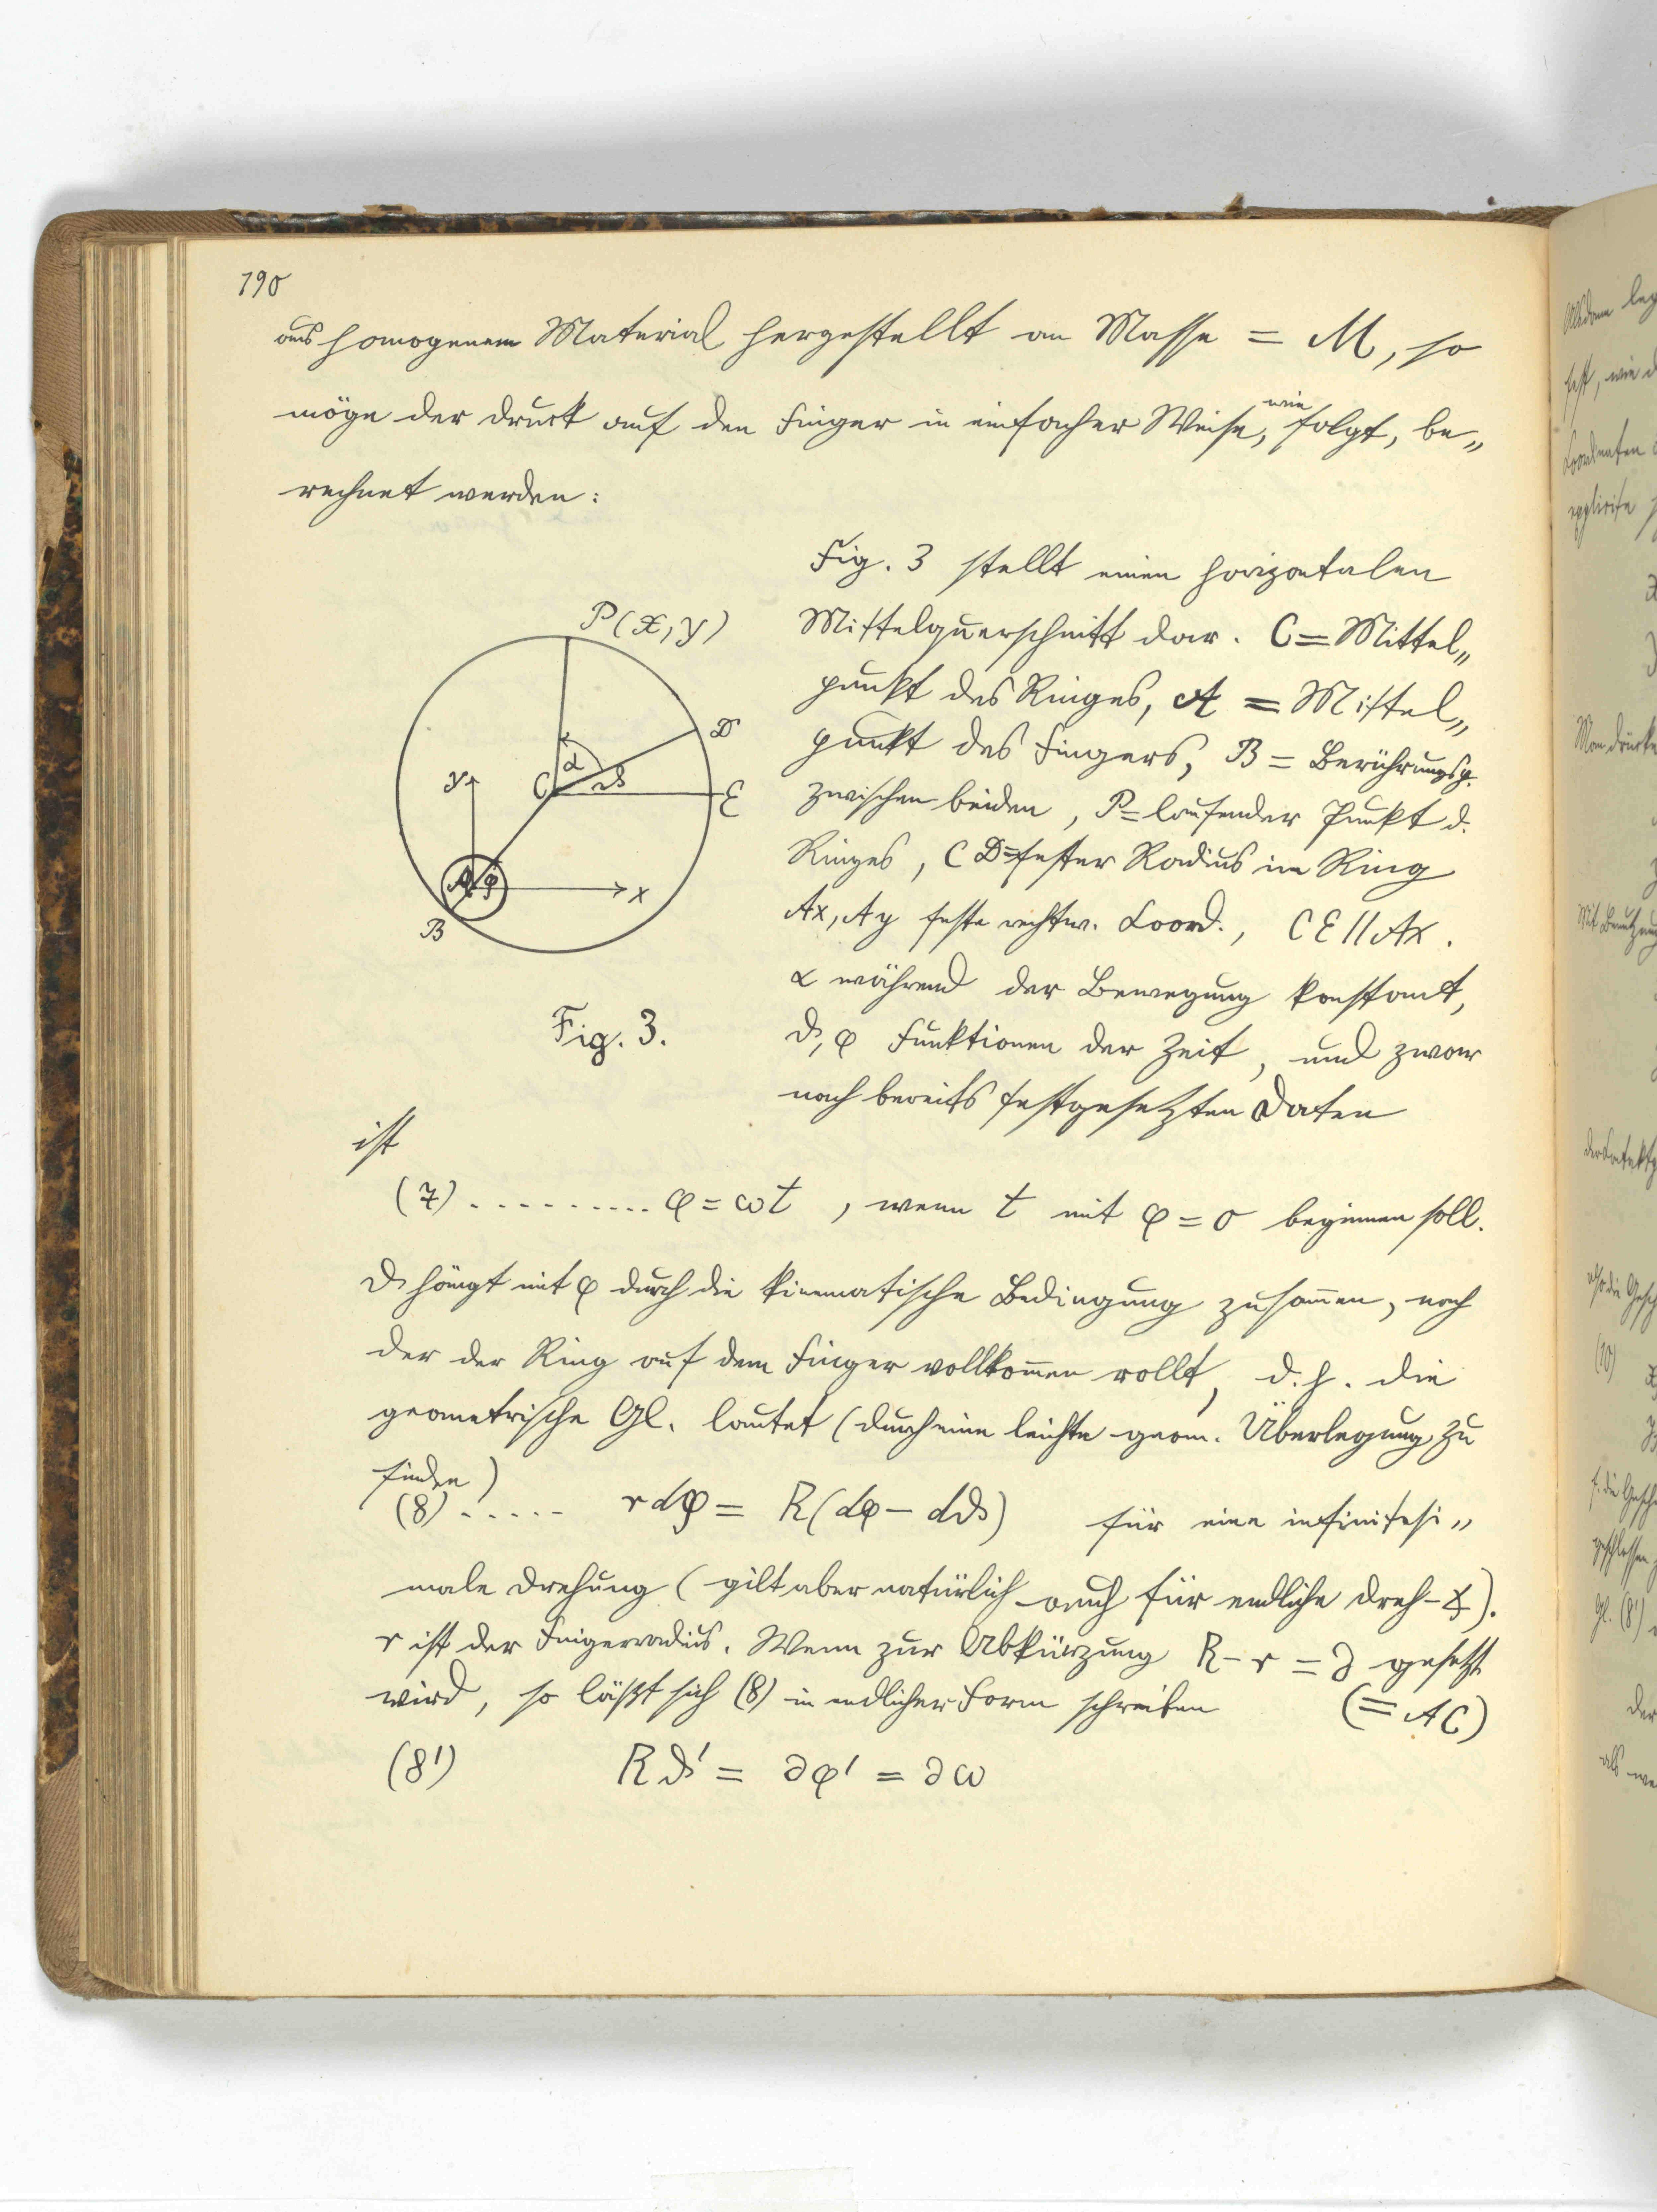 190
aus homogenem Material hergestellt an Masse = M, so
möge der Druck auf den Finger in einfacher Weise, wie folgt, be„
rechnet werden:
Fig. 3 stellt einen horizontalen
Mittelquerschnitt dar. C = Mittel„
punkt des Ringes, A = Mittel„
punkt des Fingers, B = Berührungsp.
zwischen beiden, P = laufender Punkt d.
Ringes, CD = fester Radius im Ring
Ax, Ay feste rechtw. Coord., CE // Ax.
α während der Bewegung konstant,
ϑ, φ Funktionen der Zeit, und zwar
nach bereits festgesetzten Daten
P(x, y)
D
α
ϑ
C
E
y
A
φ
x
B
Fig. 3.
ist
(7) .......... φ = ωt , wenn t mit φ = 0 beginnen soll.
ϑ hängt mit φ durch die kinematische Bedingung zusam̄en, nach
der der Ring auf dem Finger vollkom̄en rollt, d. h. die
geometrische Gl. lautet (durch eine leichte geom. Überlegung zu
finden)
(8) ..... r dφ = R(dφ - dϑ) für eine infinitesi„
male Drehung (gilt aber natürlich auch für endliche Dreh-∢).
r ist der Fingerradius. Wenn zur Abkürzung R - r = ∂ gesetzt
wird, so läßt sich (8) in endlicher Form schreiben (= AC)
(8') Rϑ' = ∂φ' = ∂ω